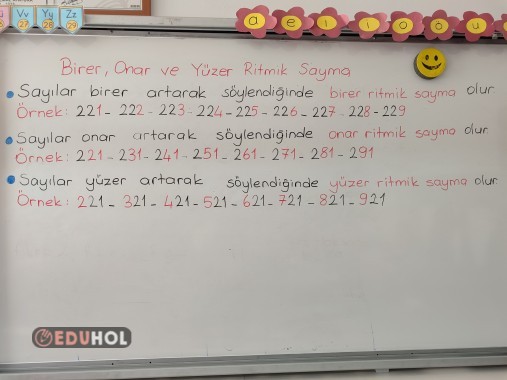 Vv Yy Zz
27 28 29
a e ı i o ö u
Birer, Onar ve Yüzer Ritmik Sayma
Sayılar birer artarak söylendiğinde birer ritmik sayma olur.
Örnek: 221 - 222 - 223 - 224 - 225 - 226 - 227 - 228 - 229
Sayılar onar artarak söylendiğinde onar ritmik sayma olur.
Örnek: 221 - 231 - 241 - 251 - 261 - 271 - 281 - 291
Sayılar yüzer artarak söylendiğinde yüzer ritmik sayma olur.
Örnek: 221 - 321 - 421 - 521 - 621 - 721 - 821 - 921
EDUHOL